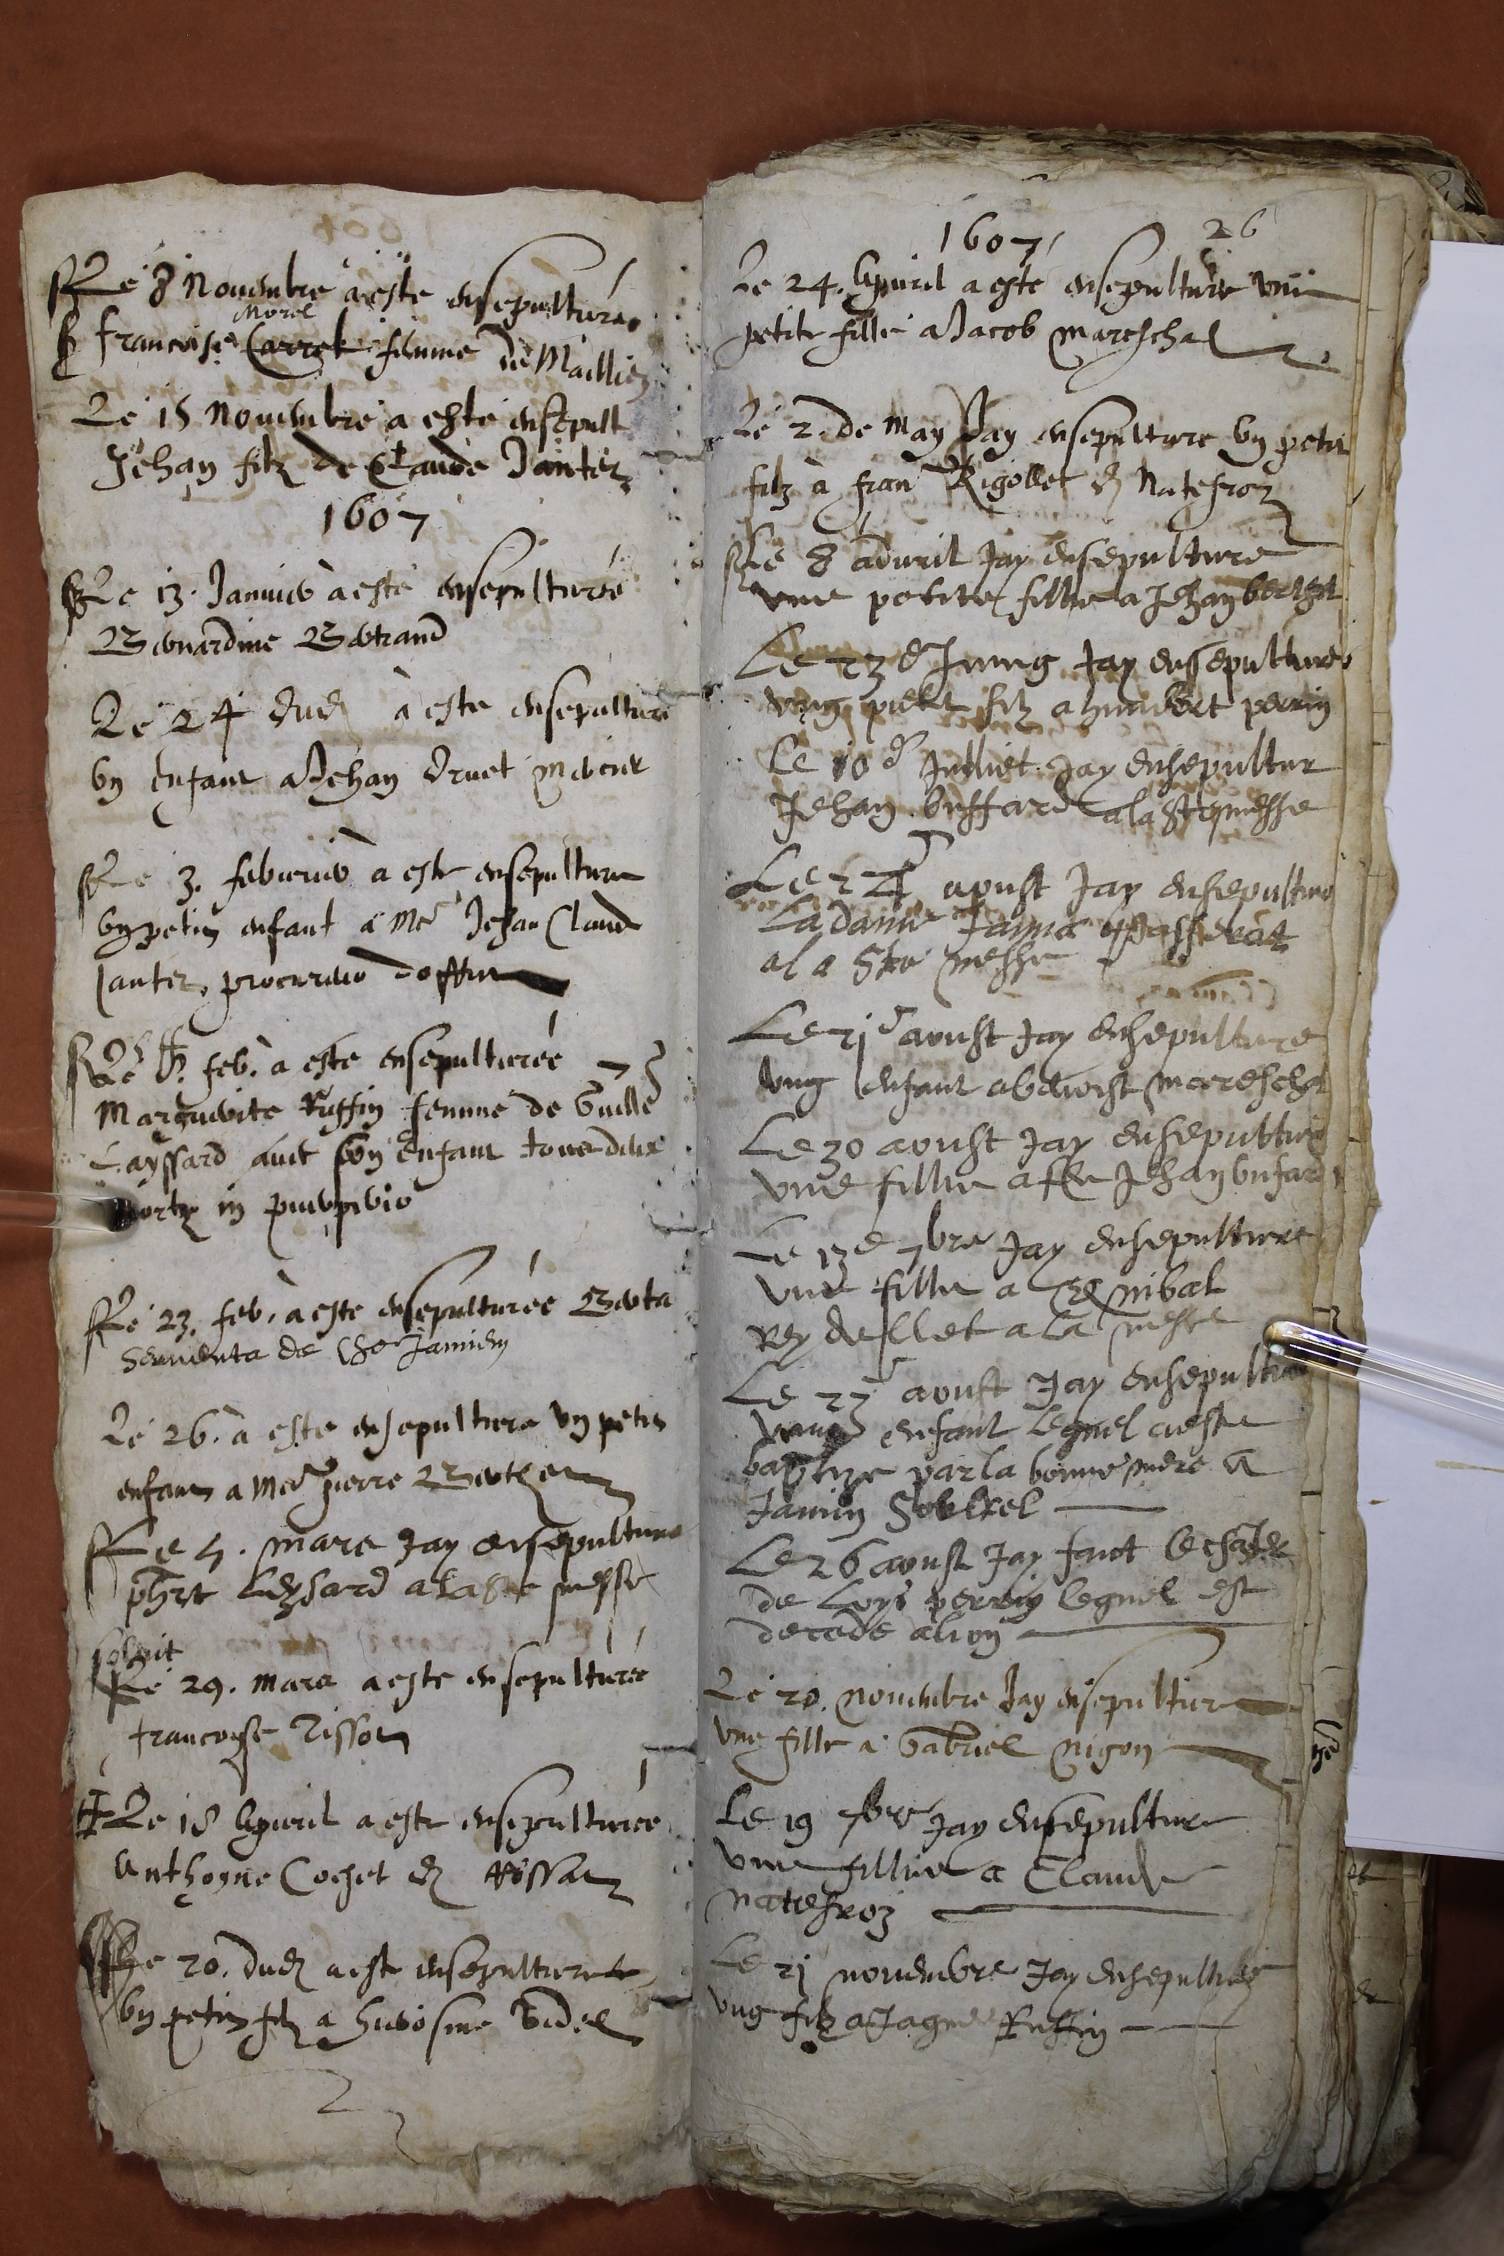 Le 8 Novembre a este ensepulturée
Morel
francoise Carret femme de Maillie
Le 15 Novembre a este ensepult
Jehan filz de Claude Janter
1607
Le 13. Janvier a esté ensepulturée
Bernardine Bertrand
Le 24 dud a este ensepulture
un enfant a Jehan Druet mercier
Le 3. febvrier a este ensepulture
un petit enfant a Me Jehan Claude
Janter, procureur doffice
Le feb. a este ensepulturée
Marguerite Ruffin femme de Guille
Layssard avec son enfant tous deux
mortz in puerperio
Le 23. feb. a este ensepulturée Berta
serventa de Janin
Le 26. a este ensepulture un petit
enfant a Me pierre
Le 5. mars Jay ensepulture
phrt Leysard a la Ste messe
solvit
Le 29. mars a este ensepulturée
francoyse Tisson
Le 18 Apvril a este ensepulturée
Anthoyne Cochet d Rossat
Le 20. dud a este ensepulture
un petit filz a hierosme Videl
1607 26
Le 24. Apvril a esté ensepulture une
petite fille a Jacob Mareschal
Le 2. de May Jay ensepulture un petit
filz à fran Rigollet d Natefroz
Le 8 advril Jay ensepulture
une petite fillie a Jehan berthet
Le 23e Juing Jay ensepulture
ung petit filz a humbert perrin
Le 10e Julliet Jay ensepultur
Jehan buffard a la Ste messe
Le 24 aoust Jay ensepulture
La dame Janna passerat
a la Ste messe
Le 21 aoust Jay ensepulture
ung enfant a benoist mareschal
Le 30 aoust Jay ensepulture
une fillie a Jehan bufard
Le 13e 7bre Jay ensepulture
une fillie a nibal
Reydellet a la messe
Le 27 aoust Jay ensepulture
ung enfant lequel a este
baptize par la bonne mere a
Janin
Le 26 aoust Jay faict
de Loys perrin lequel est
decede a lion
Le 20. novembre Jay ensepulture
une fille a Gabriel nigon
Le 19 Jay ensepulture
une fillie a Claude
Natefroz
Le 21 novembre Jay ensepulture
ung filz a Jaques Ruffin